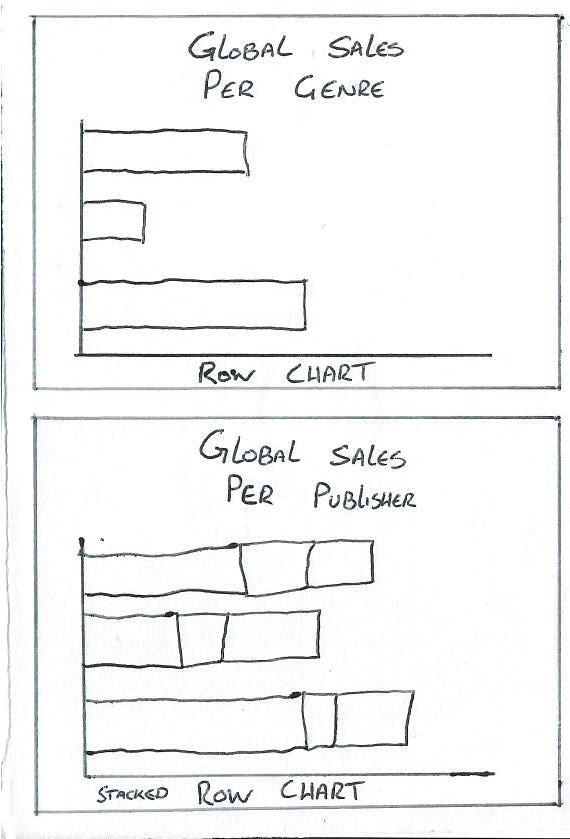 GLOBAL SALES
PER GENRE
ROW CHART
GLOBAL SALES
PER PUBLISHER
STACKED ROW CHART